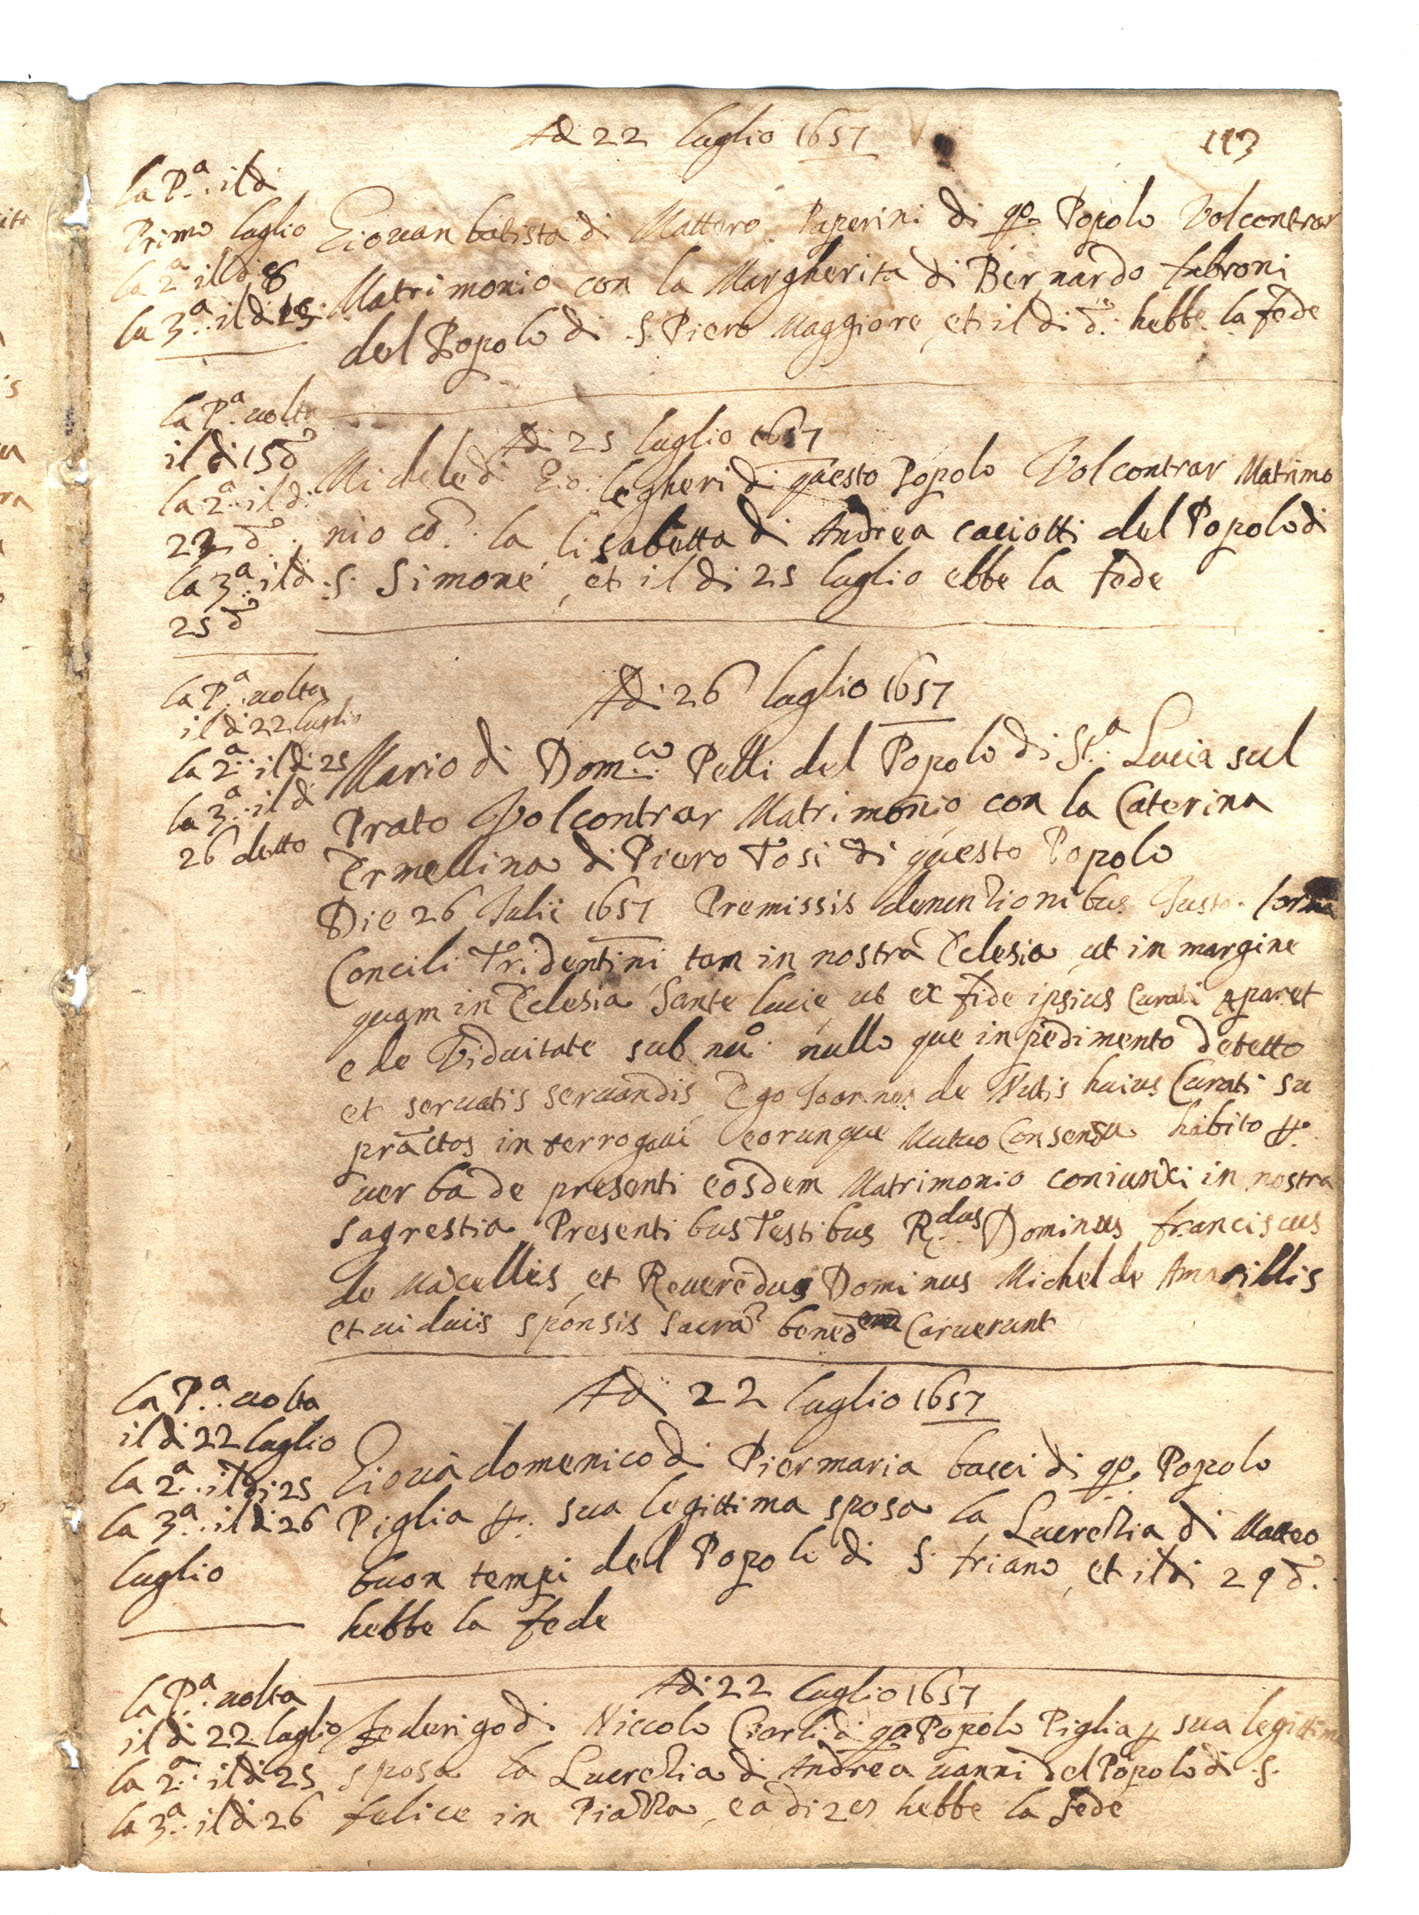 Adi 22 luglio 1657
113
la P.a il di
Primo luglio
la 2a il di 8
la 3.a il di 15
Giovan batista di Matteo Paperini di qo Popolo Vol contrar
Matrimonio con la Margherita di Bernardo fabroni
del Popolo di S. Piero Maggiore, et il di d.o hebbe la fede
la P.a uolta
il di 15 d.o
la 2.a il di
22 d.o
la 3.a il di
25 d.o
Adi 25 luglio 1657
Michele di legheri di questo Popolo Vol contrar Matrimo
nio cō la lisabetta di Andrea caciotti del Popolo di
S. Simone, et il di 25 luglio ebbe la fede
la P.a uolta
il di 22 luglio
la 2.a il di 25
la 3.a il di
26 detto
Adi 26 luglio 1657
Mario di Dom.co Pelli del Popolo di St.a Lucia sul
Prato Vol contrar Matrimonio con la Caterina
Ermellina di Piero Tosi di questo Popolo
Die 26 Julii 1657 Premissis denuntionibus Justa forma
Concili Tridentini tam in nostra Eclesia ut in margine
quam in Eclesia Sante lucie ut ex fide ipsius Curati aparet
e de Viduitate sub nu.o nullo que inpedimento detetto
et seruatis seruandis Ego Joannes de Nutis huius Curati su
pràctos interrogaui eorunque Mutuo Consensu habito p
uerba de presenti eosdem Matrimonio coniunxi in nostra
sagrestia Presentibus Testibus R.dus Dominus franciscus
de Macellis, et Reuerēdus Dominus Michel de Amarillis
et uiduis sponsis sacrā bened Caruerunt
la P.a uolta
il di 22 luglio
la 2.a il di 25
la 3.a il di 26
luglio
Adi 22 luglio 1657
Giouā domenico di Piermaria bacci di qo Popolo
Piglia p sua legittima sposa la Lucrezia di Matteo
buon tempi del Popolo di S. friano, et il di 29 d.o
hebbe la fede
la P.a uolta
il di 22 luglio
la 2.a il di 25
la 3.a il di 26
Adi 22 luglio 1657
federigo di Niccolo Ciarli di qo Popolo Piglia p sua legittim
sposa la Lucrezia di Andrea uanni del Popolo di S.
felice in Piazza, e a di hebbe la fede